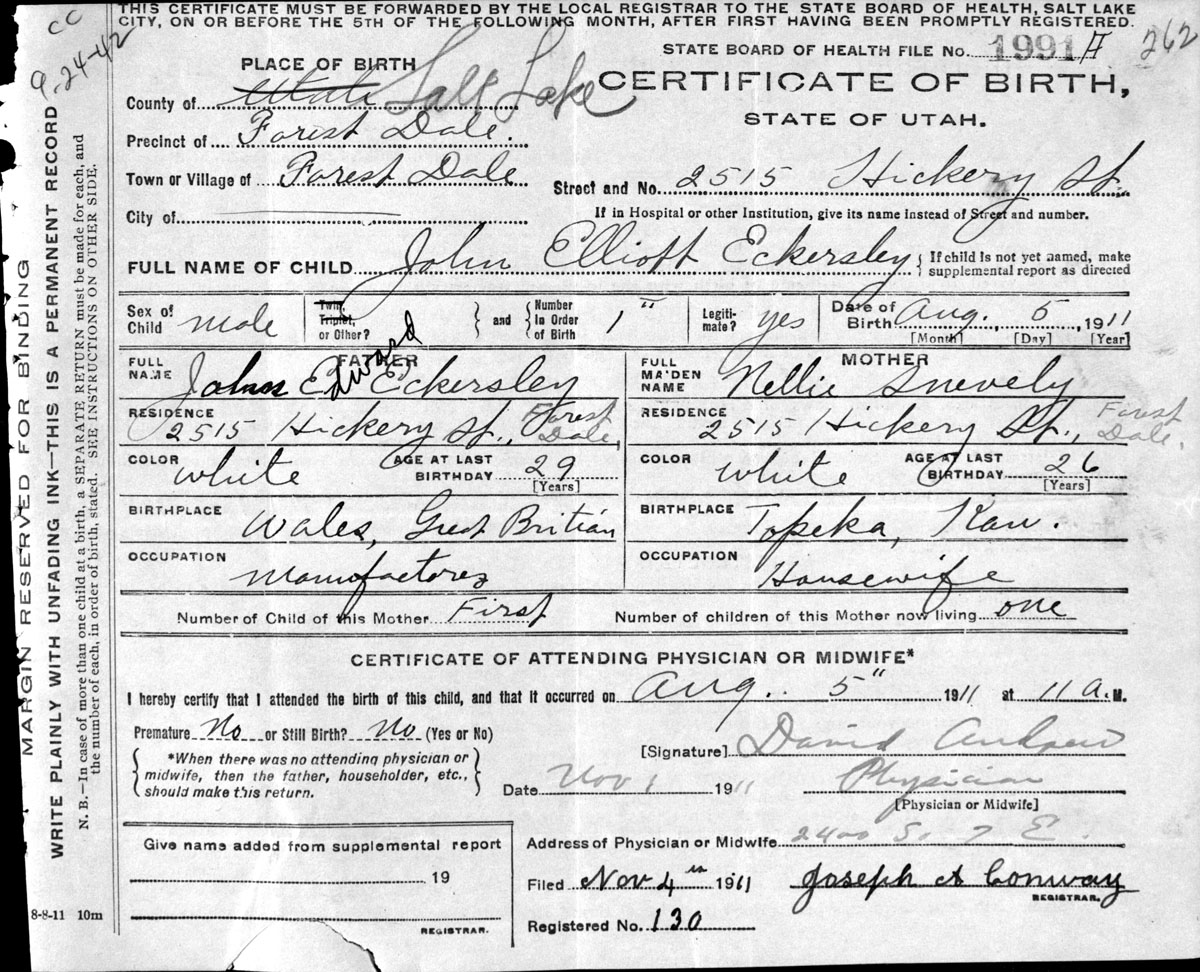 THIS CERTIFICATE MUST BE FORWARDED BY THE LOCAL REGISTRAR TO THE STATE BOARD OF HEALTH, SALT LAKE
CITY, ON OR BEFORE THE 5TH OF THE FOLLOWING MONTH, AFTER FIRST HAVING BEEN PROMPTLY REGISTERED.
CC
9-24-42
STATE BOARD OF HEALTH FILE No. 1991 A 262
PLACE OF BIRTH
CERTIFICATE OF BIRTH,
STATE OF UTAH.
County of Utah Salt Lake
Precinct of Forest Dale.
Town or Village of Forest Dale
Street and No. 2515 Hickery St.
City of
If in Hospital or other Institution, give its name instead of Street and number.
FULL NAME OF CHILD John Elliott Eckersley { If child is not yet named, make
supplemental report as directed
Sex of Child male
Twin, Triplet, or Other? } and { Number in Order of Birth 1"
Legiti-mate? yes
Date of Birth Aug. 5, 1911
[Month] [Day] [Year]
FATHER
FULL NAME John Edward Eckersley
RESIDENCE
2515 Hickery St., Forest Dale,
COLOR White AGE AT LAST BIRTHDAY 29
[Years]
BIRTHPLACE Wales, Great Britian
OCCUPATION
MOTHER
FULL MAIDEN NAME Nellie Snevely
RESIDENCE
2515 Hickery St., Forest Dale.
COLOR White AGE AT LAST BIRTHDAY 26
[Years]
BIRTHPLACE Topeka, Kan.
OCCUPATION Housewife
Number of Child of this Mother First Number of children of this Mother now living one
CERTIFICATE OF ATTENDING PHYSICIAN OR MIDWIFE*
I hereby certify that I attended the birth of this child, and that it occurred on Aug. 5" 1911 at 11 a. M.
Premature No or Still Birth? No (Yes or No)
[Signature] David Andrew
{ *When there was no attending physician or
midwife, then the father, householder, etc.,
should make this return. }
Date Nov 1 1911 Physician
[Physician or Midwife]
Give name added from supplemental report
19
REGISTRAR.
Address of Physician or Midwife 2400 So 7 E.
Filed Nov 4th 1911 Joseph A Conway
REGISTRAR.
Registered No. 130
8-8-11 10m
MARGIN RESERVED FOR BINDING
WRITE PLAINLY WITH UNFADING INK—THIS IS A PERMANENT RECORD
N. B.—In case of more than one child at a birth, a SEPARATE RETURN must be made for each, and
the number of each, in order of birth, stated. SEE INSTRUCTIONS ON OTHER SIDE.